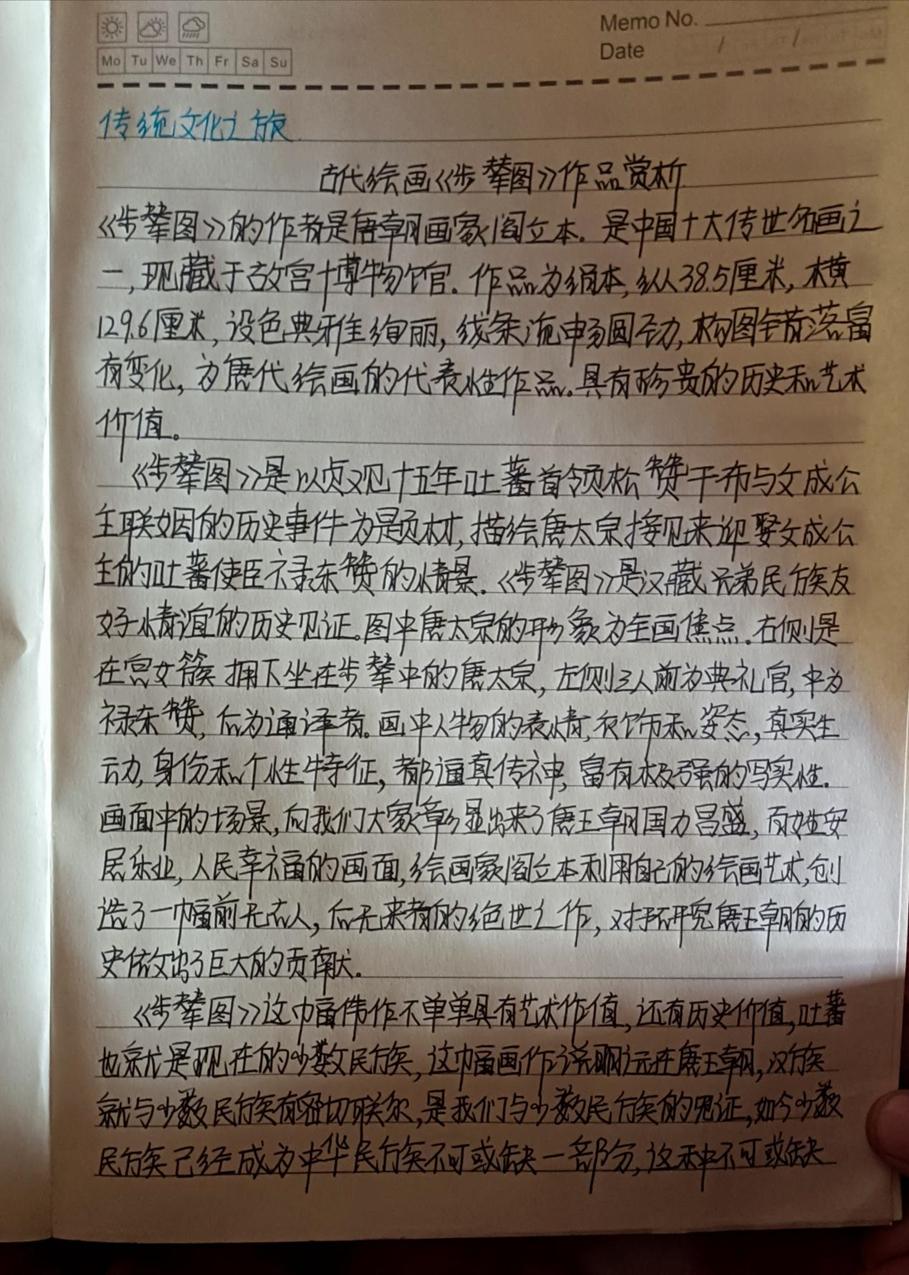 Memo No.
Date / /
Mo Tu We Th Fr Sa Su
传统文化之旅
古代绘画《步辇图》作品赏析
《步辇图》的作者是唐朝画家阎立本.是中国十大传世名画之
一,现藏于故宫博物馆.作品为绢本,纵38.5厘米,横
129.6厘米,设色典雅绚丽,线条流畅圆劲,构图错落富
有变化,为唐代绘画的代表性作品.具有珍贵的历史和艺术
价值。
《步辇图》是以贞观十五年吐蕃首领松赞干布与文成公
主联姻的历史事件为题材,描绘唐太宗接见来迎娶文成公
主的吐蕃使臣禄东赞的情景.《步辇图》是汉藏兄弟民族友
好情谊的历史见证.图中唐太宗的形象为全画焦点.右侧是
在宫女簇拥下坐在步辇中的唐太宗,左侧三人前为典礼官,中为
禄东赞,后为通译者.画中人物的表情,衣饰和姿态,真实生
动,身份和个性特征,都逼真传神,富有极强的写实性.
画面中的场景,向我们大家彰显出来了唐王朝国力昌盛,百姓安
居乐业,人民幸福的画面,绘画家阎立本利用自己的绘画艺术,创
造了一幅前无古人,后无来者的绝世之作,对于研究唐王朝的历
史做出了巨大的贡献.
《步辇图》这巾畐伟作不单单具有艺术作值,还有历史价值,吐蕃
也就是现在的少数民族,这幅画作说明远在唐王朝,汉族
就与少数民族有密切联系,是我们与少数民族的见证,如今少数
民族已经成为中华民族不可或缺一部分,这种不可或缺